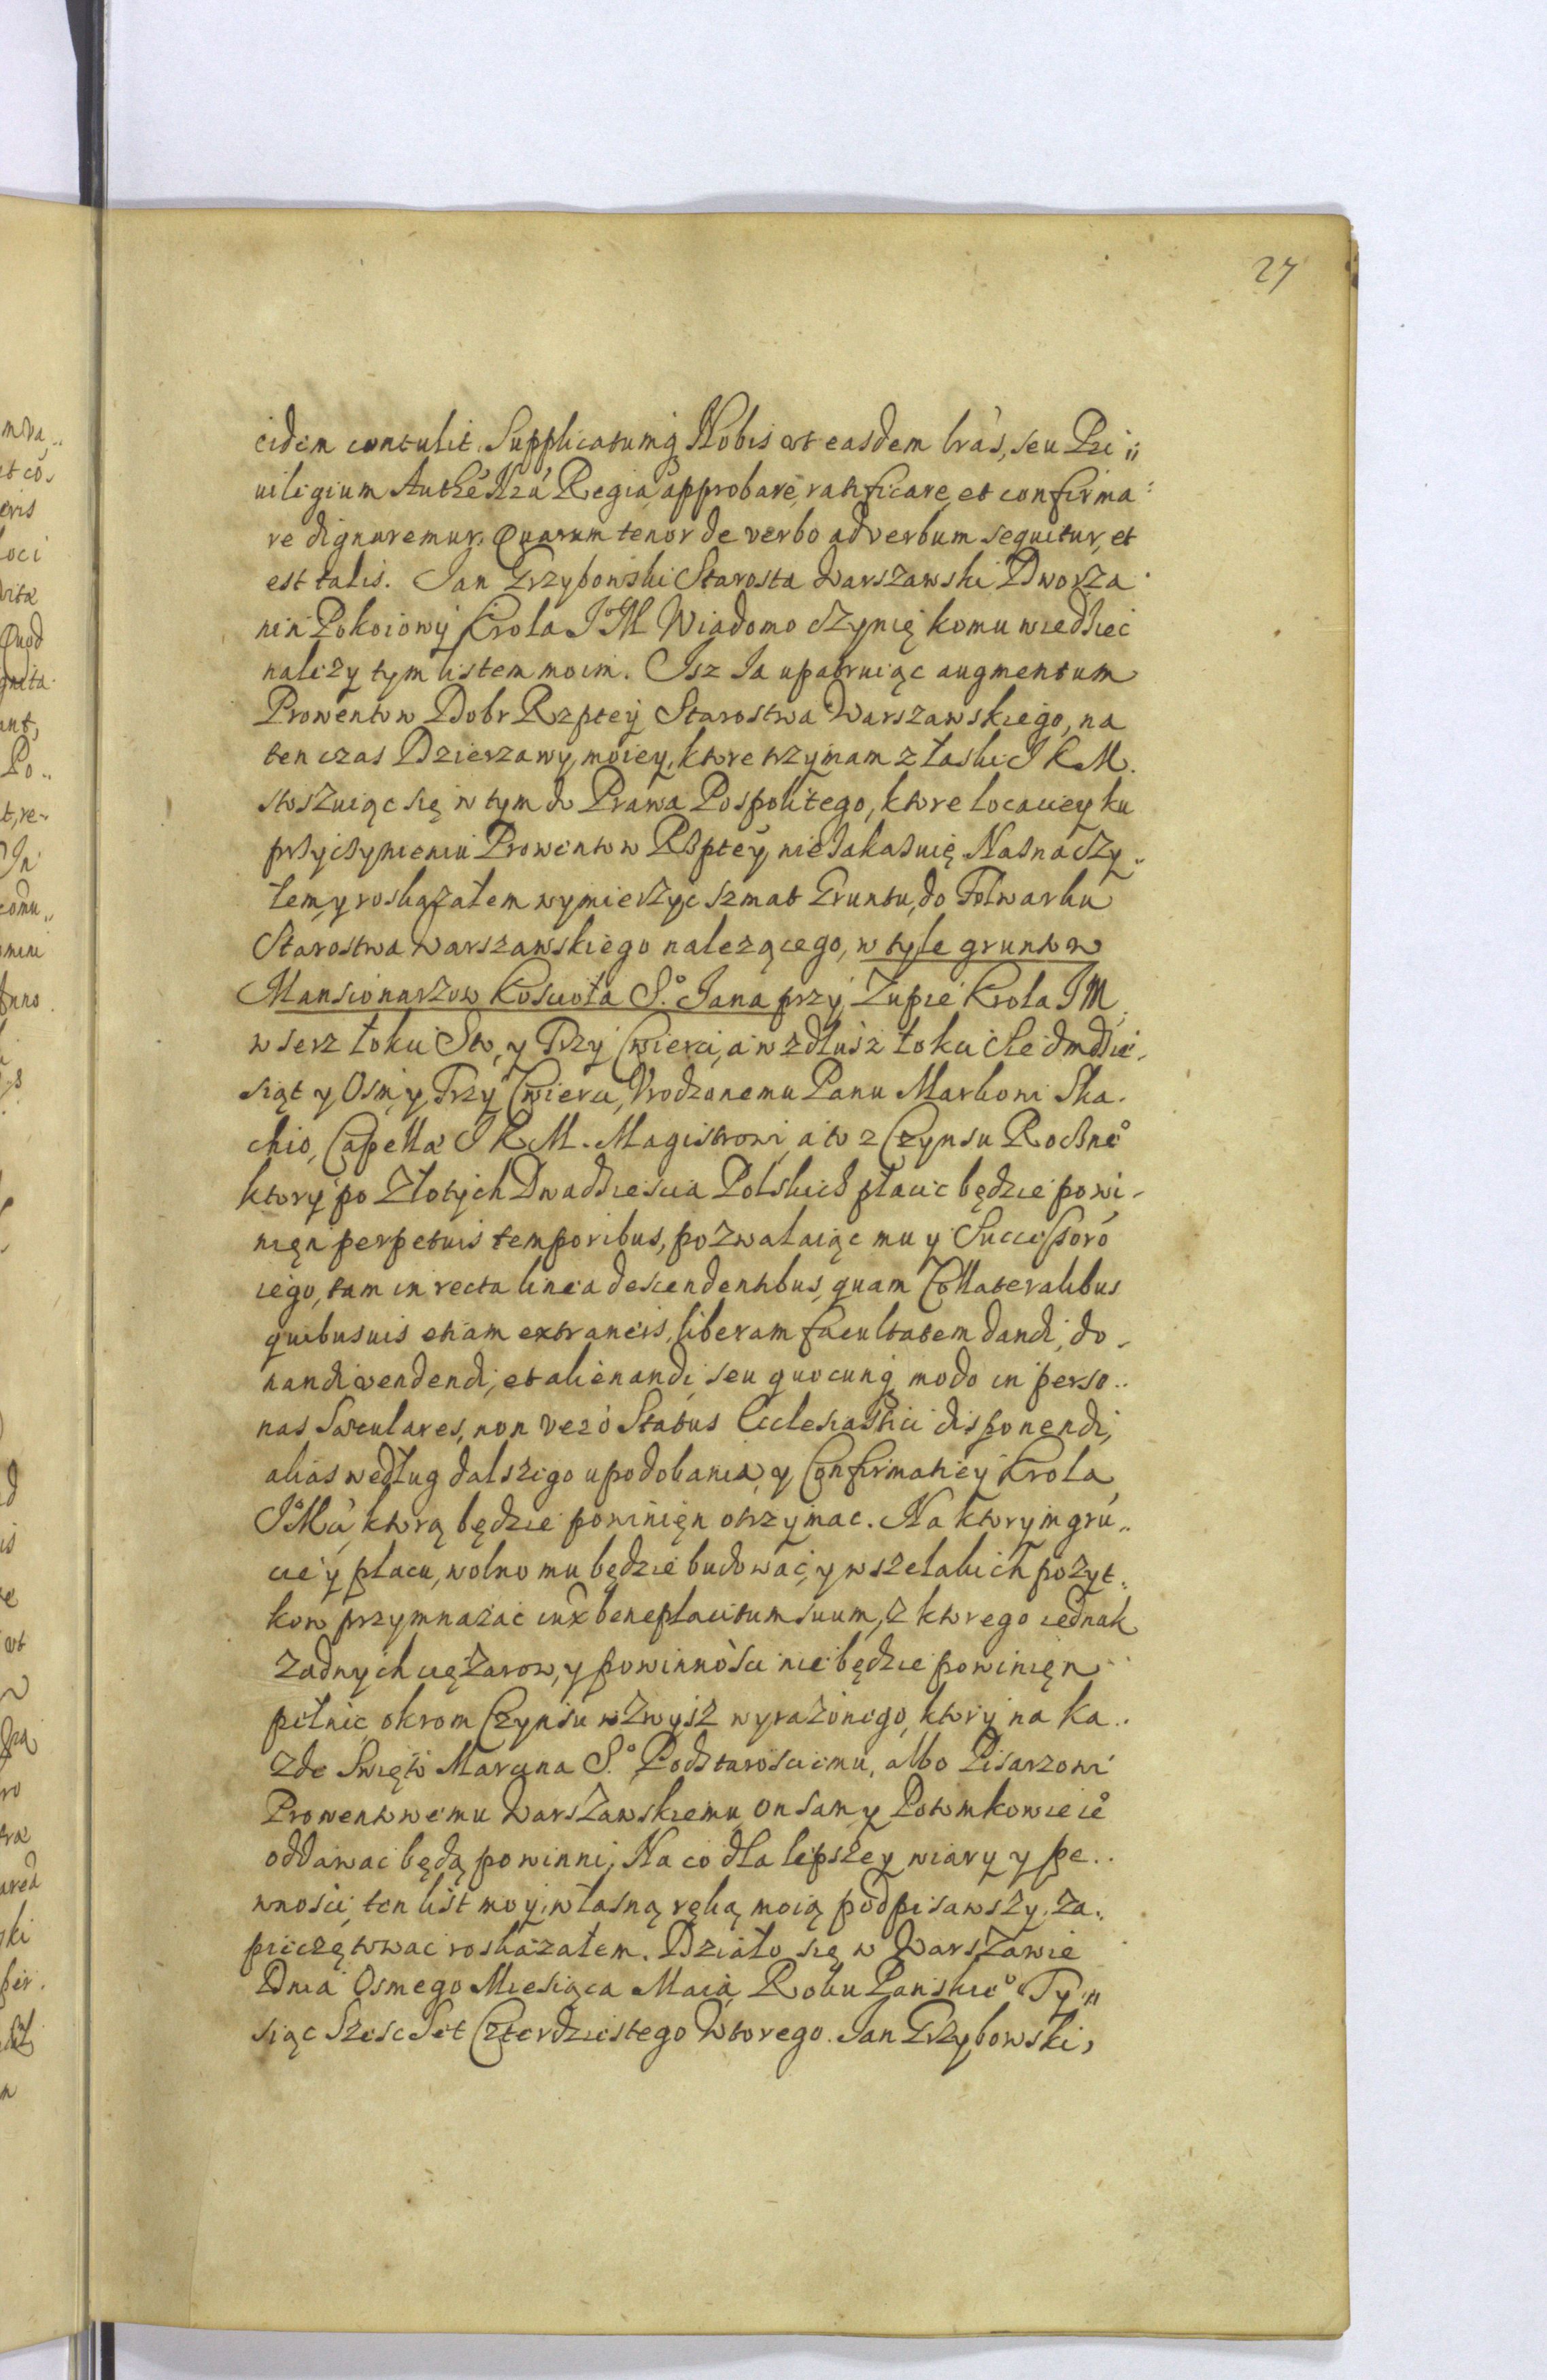 27
eidem contulit. Supplicatumq; Nobis ut easdem lrás, seu Pri„
uilegium Authe Nrá Regia approbare, ratificare, et confirma
re dignaremur. Quarum tenor de verbo ad verbum sequitur, et
est talis. Jan Grzybowski Starosta Warszawski Dworza
nin Pokoiowy Krola JoM Wiadomo czynię komu wiedziec
nalezy tym listem moim. Jsz Ja upatruiąc augmentum
Prowentow Dobr Rzptey Starostwa Warszawskiego, na
ten czas Dzierzawy moiey, ktore trzymam z łaski J K M.
stoszuiąc się w tym do Prawa Pospolitego, ktore locatiey ku
przyczynieniu Prowentow Rzptey nie zakazuię Naznaczy„
łem, y roskazałem wymierzyc szmat Gruntu, do Folwarku
Starostwa Warszawskiego nalezącego, w tyle gruntow
Mansionarzow Koscioła S.o Jana przy Zupie Krola JM
w szerz łokci Sto, y Trzy Cwierci, a w zdłusz łokci Siedmdzie-
siąt y Osm y Trzy Cwierci, Vrodzonemu Panu Markowi Ska-
chio, Capellæ J K M. Magistrowi, a to z Czynsu Roczneo
ktory po Złotych Dwadziescia Polskich płacic będzie powi-
nięn perpetuis temporibus, pozwalaiąc mu y Successoró
iego, tam in recta linea descendentibus, quam Collateralibus
quibusuis etiam extraneis, liberam facultatem dandi, do-
nandi vendendi, et alienandi, seu quocunq; modo in perso„
nas Sæculares, non veró Status Ecclesiastici disponendi,
alias według dalszego upodobania, y Confirmatiey Krola
JoMci, ktorą będzie powinięn otrzymac. Na ktorym grú„
cie y placu, wolno mu będzie budowac, y wszelakich pozyt„
kow przymnazac iux beneplacitum suum, z ktorego iednak
zadnych cięzarow, y powinności nie będzie powinięn
pełnic, okrom Czynsu wzwysz wyrazonego, ktory na ka„
zde Swięto Marcina S.o Podstarosciemu, albo Pisarzowi
Prowentowemu Warszawskiemu on sam y Potomkowie ieo
oddawac będą powinni. Na co dla lepszey wiary y pe„
wnosci, ten list moy własną ręką moią podpisawszy, za„
pieczętowac roskazałem. Działo się w Warszawie
Dnia Osmego Miesiąca Maia Roku Panskieo Ty„
siąc Szesc Set Czterdziestego Wtorego. Jan Grzybowski,